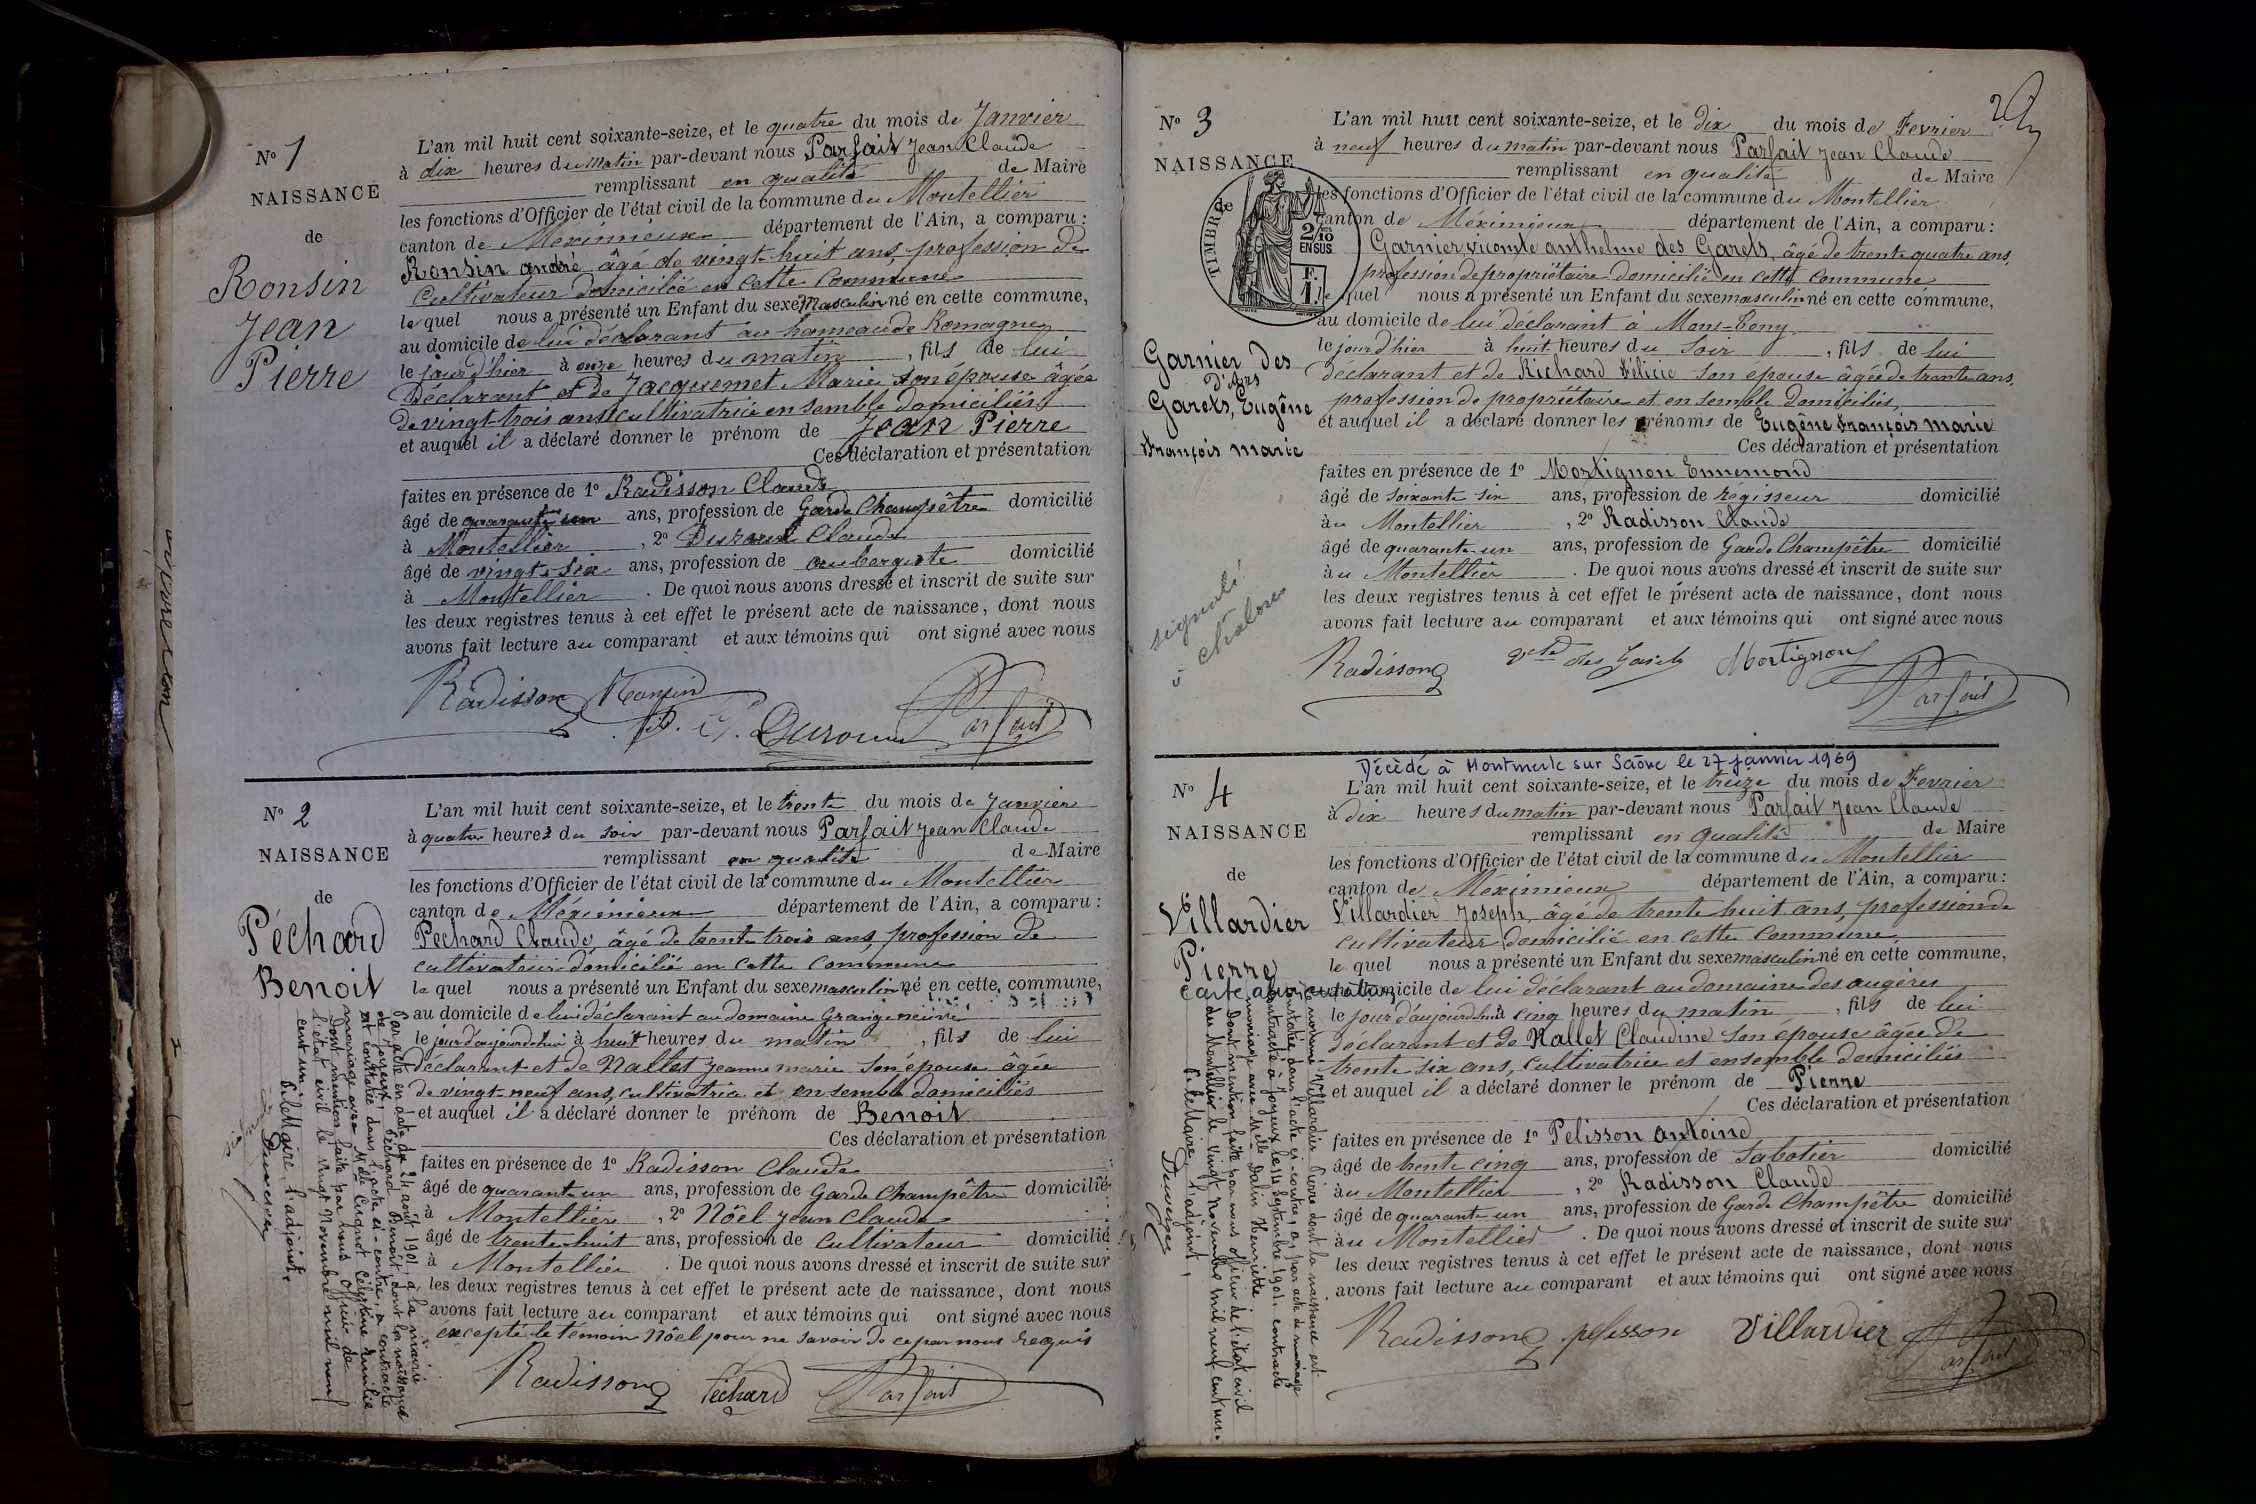 N° 1
NAISSANCE
de
Ronsin
Jean
Pierre
L'an mil huit cent soixante-seize, et le quatre du mois de Janvier
à dix heures du matin par-devant nous Parfait Jean Claude
remplissant en qualité de Maire
les fonctions d'Officier de l'état civil de la commune du Montellier
canton de Méximieux département de l'Ain, a comparu :
Ronsin andré âgé de vingt-huit ans, profession de
Cultivateur domicilié en cette commune
lequel nous a présenté un Enfant du sexe masculin né en cette commune,
au domicile de lui déclarant au hameau de Romagne
le jour d'hier à onze heures du matin, fils de lui
Déclarant et de Jacquemet Marie son épouse âgée
de vingt-trois ans cultivatrice ensemble domiciliés
et auquel il a déclaré donner le prénom de Jean Pierre
Ces déclaration et présentation
faites en présence de 1° Radisson Claude
âgé de quarante un ans, profession de Garde Champêtre domicilié
à Montellier, 2° Claude
âgé de vingt-six ans, profession de aubergiste domicilié
à Montellier. De quoi nous avons dressé et inscrit de suite sur
les deux registres tenus à cet effet le présent acte de naissance, dont nous
avons fait lecture au comparant et aux témoins qui ont signé avec nous
Radisson Ronsin
Parfait
N° 2
NAISSANCE
de
Péchard
Benoit
L'an mil huit cent soixante-seize, et le trente du mois de Janvier
à quatre heures du soir par-devant nous Parfait Jean Claude
remplissant en qualité de Maire
les fonctions d'Officier de l'état civil de la commune du Montellier
canton de Méximieux département de l'Ain, a comparu :
Péchard Claude, âgé de trente trois ans, profession de
cultivateur domicilié en cette commune
lequel nous a présenté un Enfant du sexe masculin né en cette commune,
au domicile de lui déclarant au domaine Grange neuve
le jour d'aujourd'hui à huit heures du matin, fils de lui
déclarant et de Nallet Jeanne marie son épouse âgée
de vingt-neuf ans, cultivatrice et ensemble domiciliés
et auquel il a déclaré donner le prénom de Benoit
Ces déclaration et présentation
faites en présence de 1° Radisson Claude
âgé de quarante un ans, profession de Garde Champêtre domicilié
à Montellier, 2° Nöel Jean Claude
âgé de trente-huit ans, profession de cultivateur domicilié
à Montellier. De quoi nous avons dressé et inscrit de suite sur
les deux registres tenus à cet effet le présent acte de naissance, dont nous
avons fait lecture au comparant et aux témoins qui ont signé avec nous
excepté le témoin Nöel pour ne savoir de ce par nous requis
Radisson Péchard Parfait
Par acte en date du 24 août 1901, à la mairie
de Joyeux, Péchard Benoit dont la naissance
est constatée dans l'acte ci-contre, a contracté
mariage avec Melle Cugnot Célestine Emilie
Dont mention faite par nous Officier de
l'état civil le vingt Novembre mil neuf
cent un.
P. le Maire, l'adjoint,
N° 3
NAISSANCE
TIMBRE
2/10
EN SUS
F.
1
Garnier des
Garets, Eugêne
François marie
signalé
à chalons
L'an mil huit cent soixante-seize, et le dix du mois de Fevrier
à neuf heures du matin par-devant nous Parfait Jean Claude
remplissant en qualité de Maire
les fonctions d'Officier de l'état civil de la commune du Montellier
canton de Méximieux département de l'Ain, a comparu :
Garnier vicomte anthelme des Garets, âgé de trente quatre ans,
profession de propriétaire domicilié en cette commune
lequel nous a présenté un Enfant du sexe masculin né en cette commune,
au domicile de lui déclarant à
le jour d'hier à huit heures du soir, fils de lui
déclarant et de Richard Félicie son épouse âgée de trente ans,
profession de propriétaire et ensemble domiciliés,
et auquel il a déclaré donner les prénoms de Eugêne François marie
Ces déclaration et présentation
faites en présence de 1° Mortignon Ennemond
âgé de soixante six ans, profession de régisseur domicilié
au Montellier, 2° Radisson Claude
âgé de quarante-un ans, profession de Garde Champêtre domicilié
au Montellier. De quoi nous avons dressé et inscrit de suite sur
les deux registres tenus à cet effet le présent acte de naissance, dont nous
avons fait lecture au comparant et aux témoins qui ont signé avec nous
Radisson Vte des Garets Mortignon
Parfait
Décédé à Montmerle sur Saône le 27 janvier 1969
N° 4
NAISSANCE
de
Villardier
Pierre
L'an mil huit cent soixante-seize, et le treize du mois de Fevrier
à dix heures du matin par-devant nous Parfait Jean Claude
remplissant en qualité de Maire
les fonctions d'Officier de l'état civil de la commune du Montellier
canton de Méximieux département de l'Ain, a comparu :
Villardier Joseph, âgé de trente huit ans, profession de
cultivateur domicilié en cette commune
lequel nous a présenté un Enfant du sexe masculin né en cette commune,
au domicile de lui déclarant au domaine des augères
le jour d'aujourd'hui à cinq heures du matin, fils de lui
déclarant et de Nallet Claudine son épouse âgée de
trente six ans, cultivatrice et ensemble domiciliés
et auquel il a déclaré donner le prénom de Pierre
Ces déclaration et présentation
faites en présence de 1° Pelisson antoine
âgé de trente cinq ans, profession de Sabotier domicilié
au Montellier, 2° Radisson Claude
âgé de quarante un ans, profession de Garde Champêtre domicilié
au Montellier. De quoi nous avons dressé et inscrit de suite sur
les deux registres tenus à cet effet le présent acte de naissance, dont nous
avons fait lecture au comparant et aux témoins qui ont signé avec nous
Radisson pelisson Villardier Parfait
Le nommé Villardier Pierre dont la naissance est
constatée dans l'acte ci-contre, a, par acte de mariage
contracté à Joyeux le 14 Septembre 1901, contracté
mariage avec Melle Henriette
Dont mention faite par nous officier de l'état civil
du Montellier le vingt Novembre mil neuf cent un.
P. le Maire, l'adjoint,